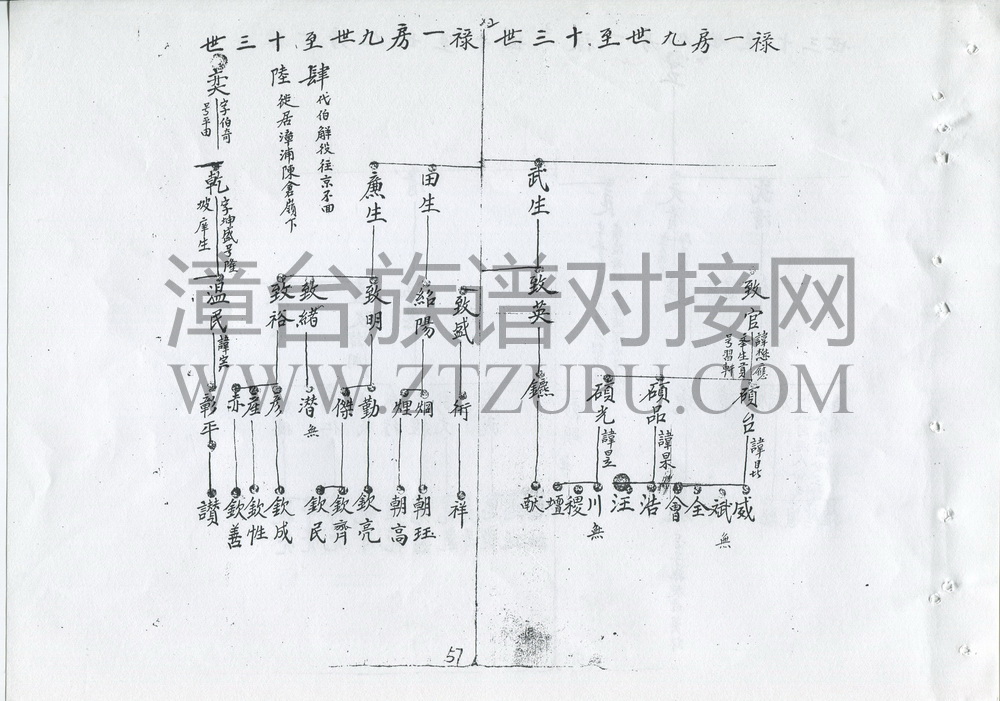 禄一房九世至十三世
致官
諱懋應
号習軒
碩台
諱昌
威
斌
無
全
會
碩品
諱杲
浩
汪
碩光
諱昱
川
無
稷
壇
武生
致英
鑣
献
禄一房九世至十三世
致盛
術
祥
由生
紹陽
炯
朝珏
煋
朝高
廉生
致明
勤
欽亮
傑
欽齊
欽民
致緒
潜
無
致裕
彥
欽成
產
欽性
赤
欽善
肆
代伯解役往京不回
陸
徙居漳浦陳倉嶺下
奕
字伯奇
号平由
乾
字坤盛号陸
坡庠生
温民
諱寔
彰平
讃
57
漳台族谱对接网
WWW.ZTZUPU.COM